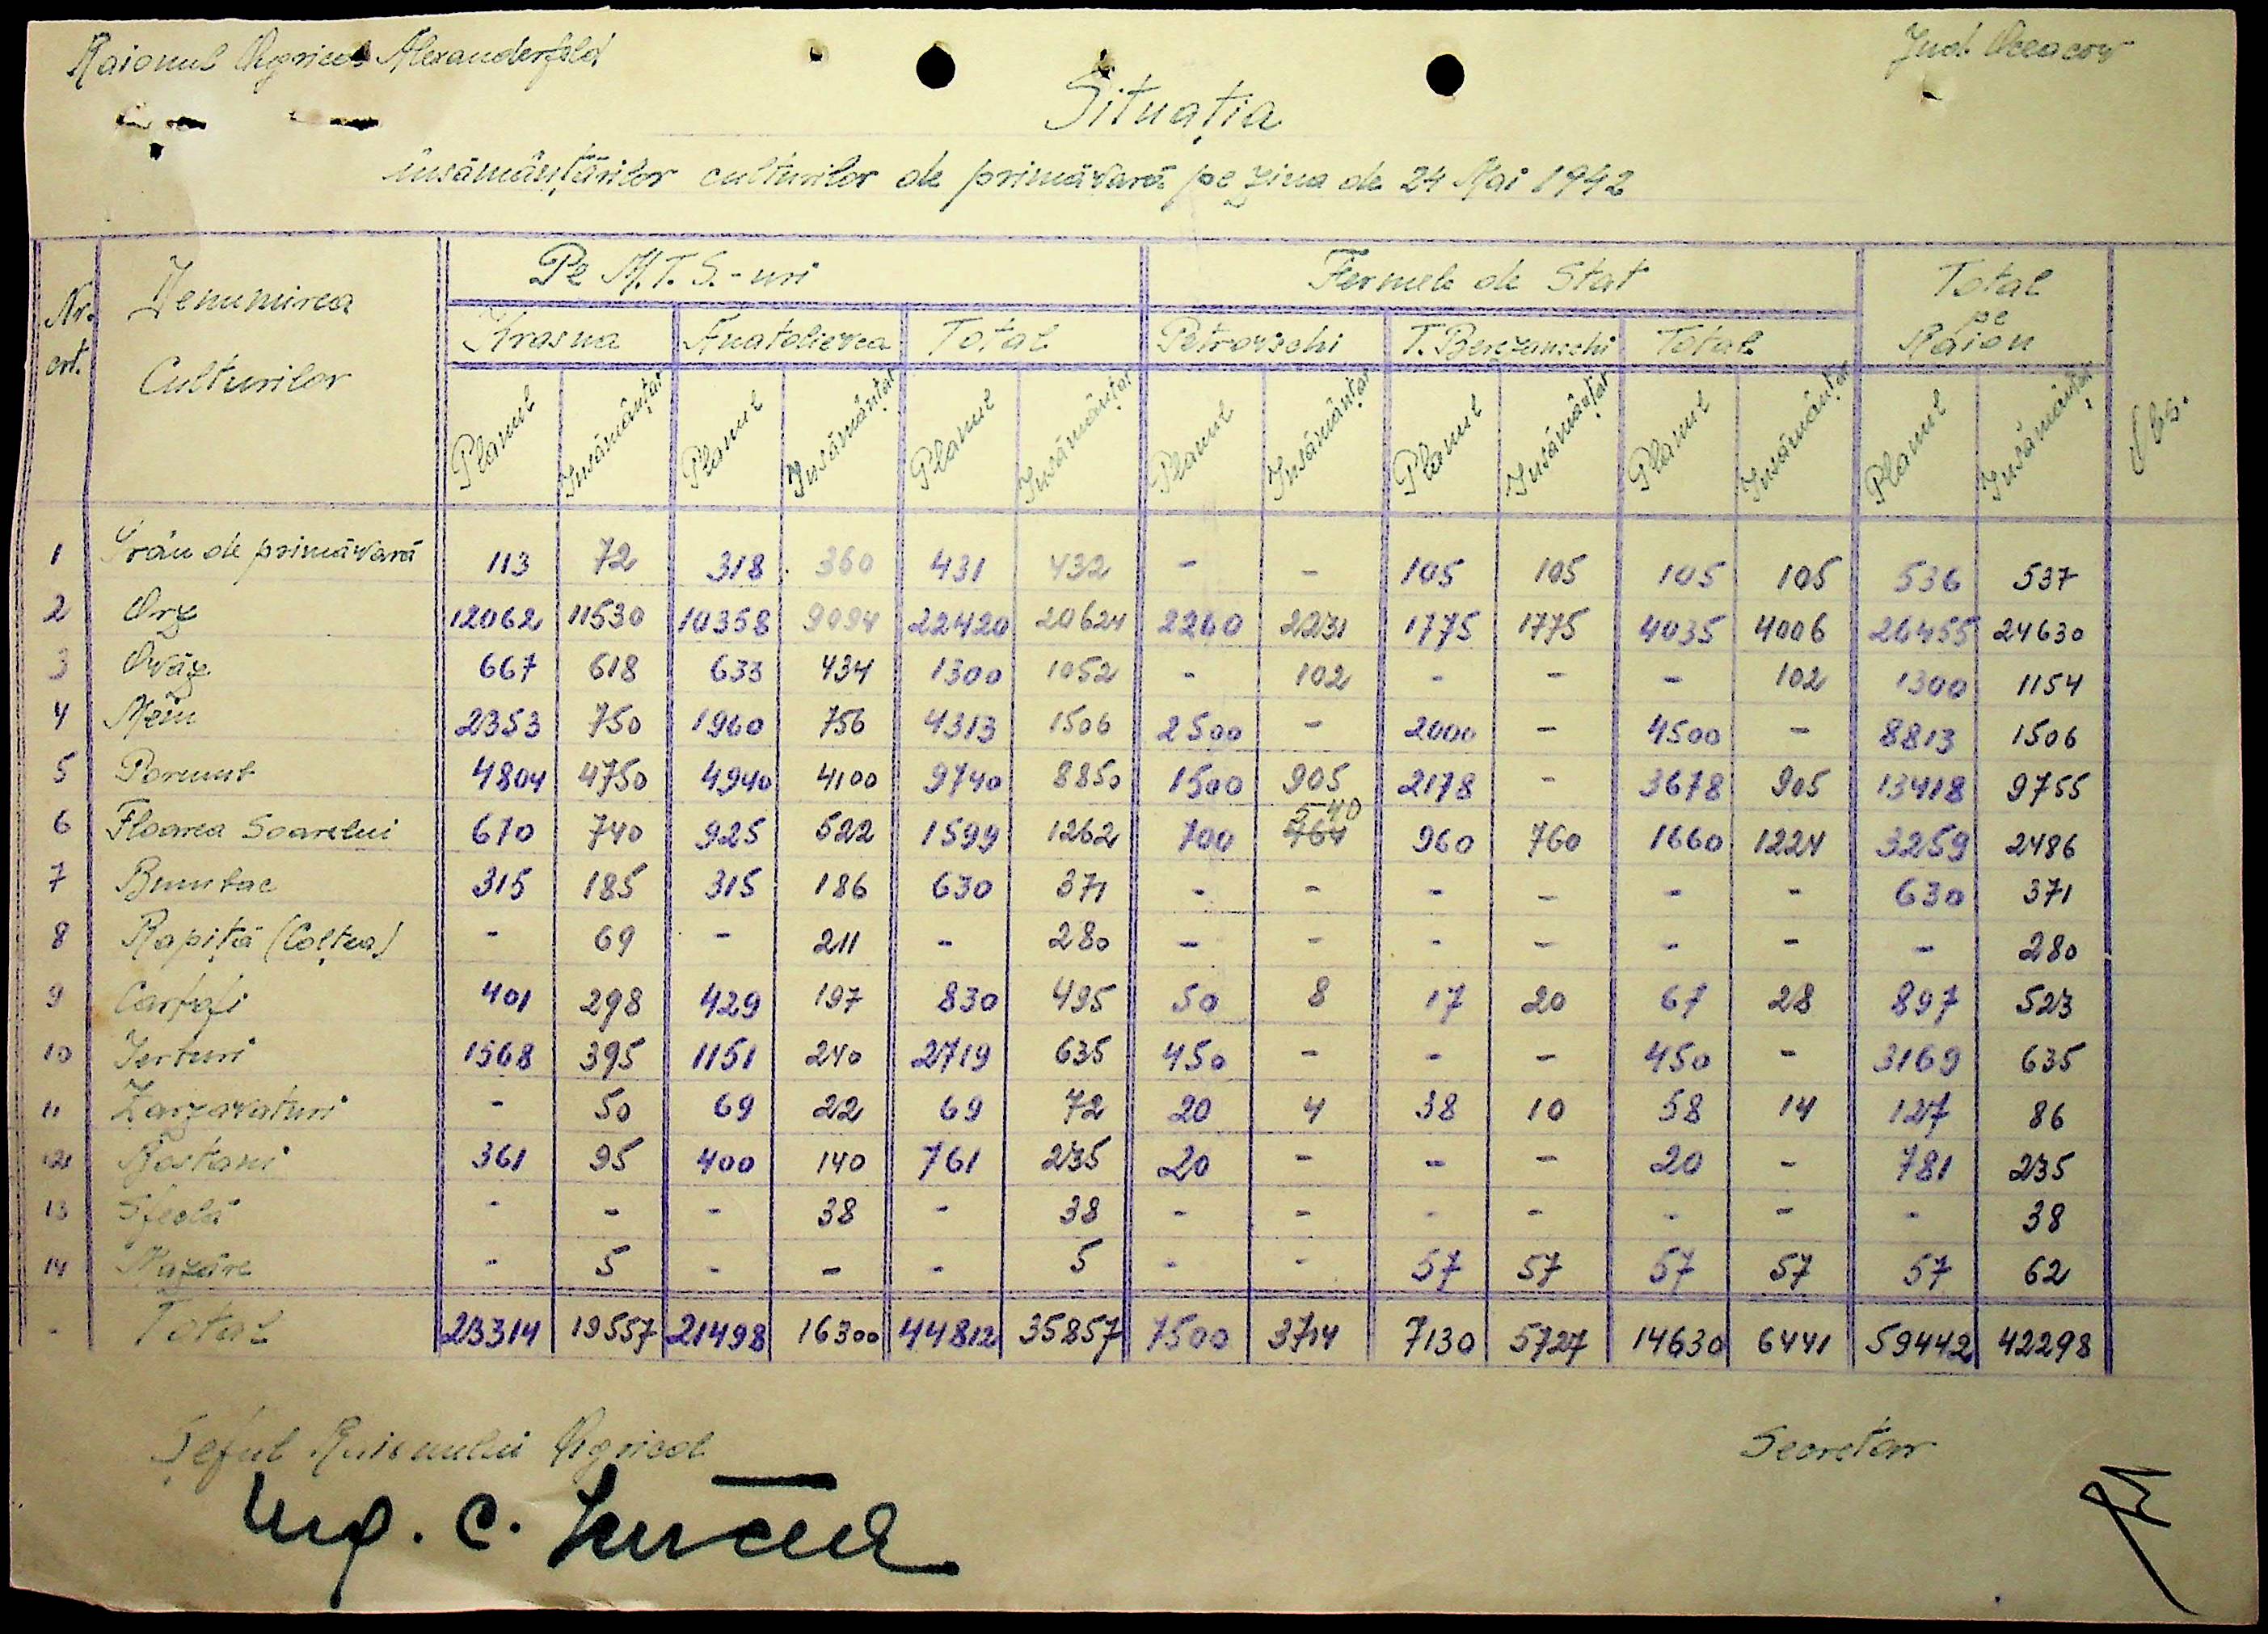 Raionul Agricol Alexanderfeld
Jud. Oceacov
Situația
însămânțărilor culturilor de primăvară pe ziua de 24 Mai 1942
Nr. crt. Denumirea Culturilor Pe M.T.S.-uri Fermele de Stat Total pe Raion Obs.
Krasna Anatolievca Total Petrovschi T. Berezanschi Total
Planul Însămânțat Planul Însămânțat Planul Însămânțat Planul Însămânțat Planul Însămânțat Planul Însămânțat Planul Însămânțat
1 Grâu de primăvară 113 72 318 360 431 432 - - 105 105 105 105 536 537
2 Orz 12062 11530 10358 9094 22420 20624 2260 2231 1775 1775 4035 4006 26455 24630
3 Ovăz 667 618 633 434 1300 1052 - 102 - - - 102 1300 1154
4 Mein 2353 750 1960 756 4313 1506 2500 - 2000 - 4500 - 8813 1506
5 Porumb 4804 4750 4940 4100 9740 8850 1500 905 2178 - 3678 905 13418 9755
540
6 Floarea Soarelui 670 740 925 522 1599 1262 700 464 960 760 1660 1224 3259 2486
7 Bumbac 315 185 315 186 630 371 - - - - - - 630 371
8 Rapiță (Colțea) - 69 - 211 - 280 - - - - - - - 280
9 Cartofi 401 298 429 197 830 495 50 8 17 20 67 28 897 523
10 Ierburi 1568 395 1151 240 2719 635 450 - - - 450 - 3169 635
11 Zarzavaturi - 50 69 22 69 72 20 4 38 10 58 14 127 86
12 Bostani 361 95 400 140 761 235 20 - - - 20 - 781 235
13 Sfeclă - - - 38 - 38 - - - - - - - 38
14 Mazăre - 5 - - - 5 - - 57 57 57 57 57 62
- Total 23314 19557 21498 16300 44812 35857 7500 3714 7130 5727 14630 6441 59442 42298
Șeful Raionului Agricol
Secretar
Ing. C.